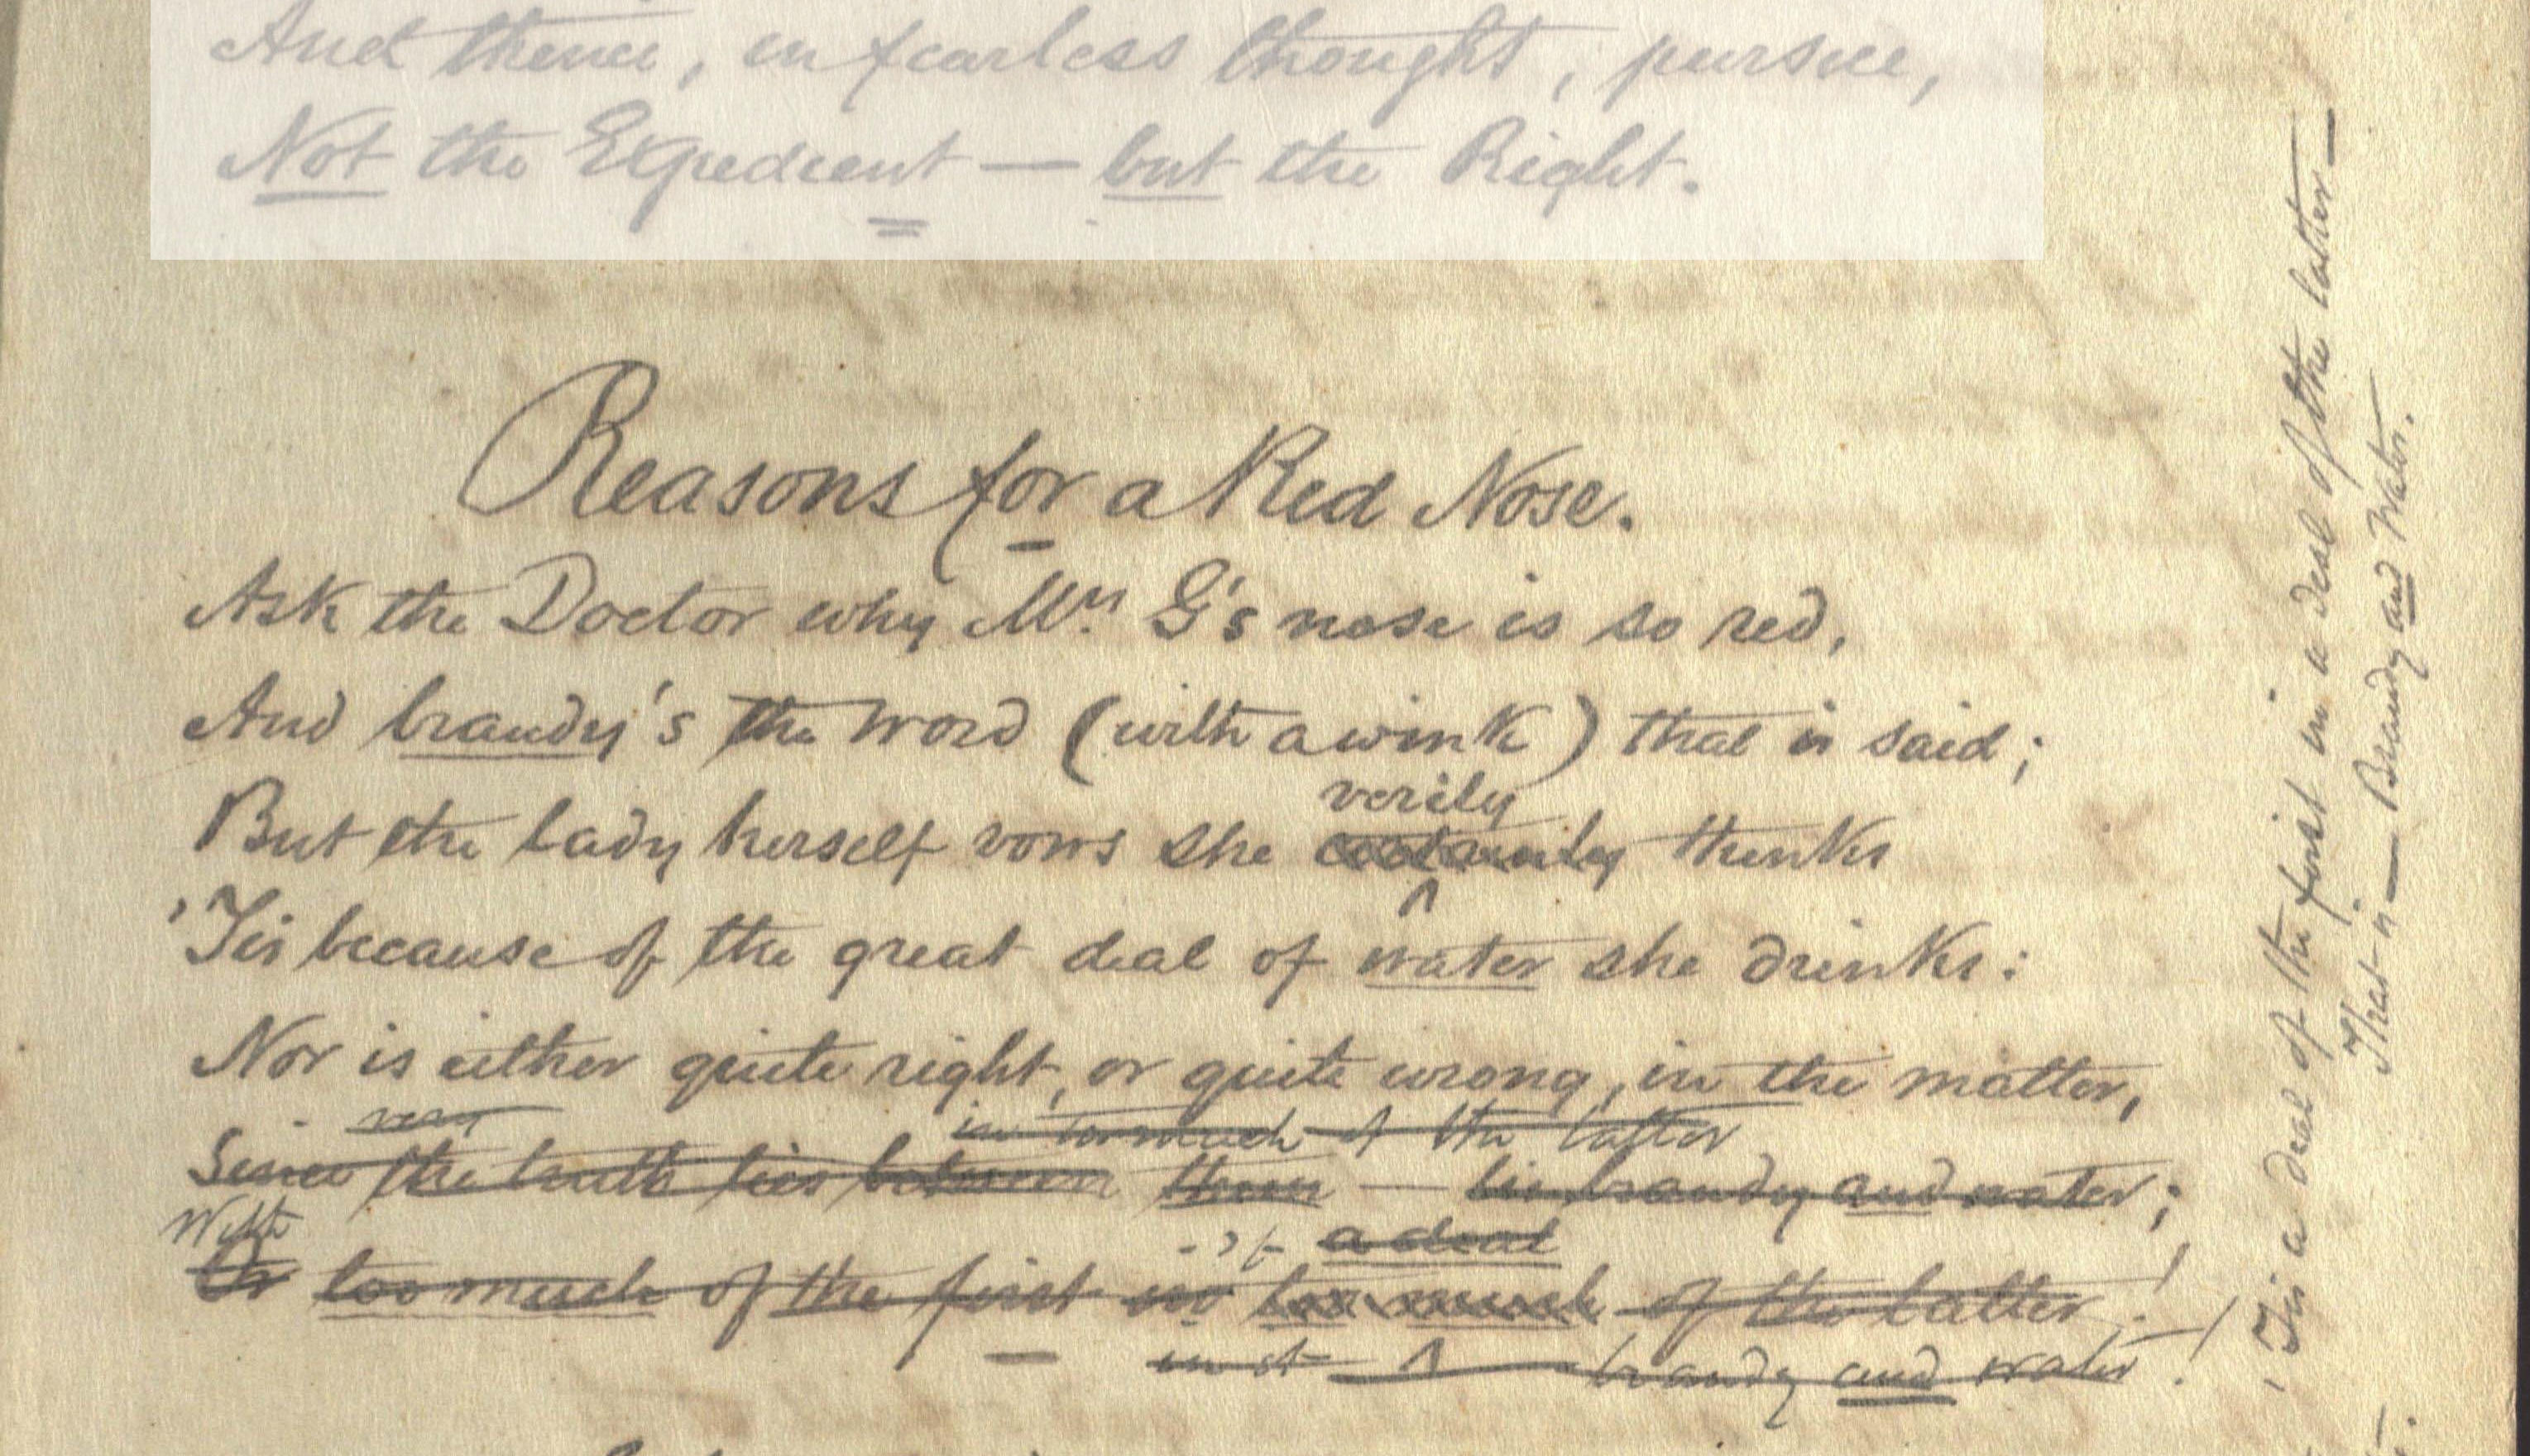 And thence, in fearless thought, pursue,
Not the Expedient — but the Right.
Reasons for a Red Nose.
Ask the Doctor why Mrs. G's nose is so red,
And brandy's the word (with a wink) that is said;
verily
But the lady herself vows she certainly thinks
'Tis because of the great deal of water she drinks:
Nor is either quite right, or quite wrong, in the matter,
very
in too much of the latter
Since the truth lies between them — in brandy and water;
With
a deal
Or too much of the first in too much of the latter!
in it brandy and water!
'Tis a deal of the first in a deal of the latter —
That is — Brandy and Water.